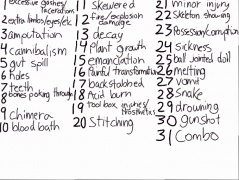 excessive gashes/
lacerations
2 extra limbs/eyes/etc
3 amputation
4 cannibalism
5 gut spill
6 holes
7 teeth
8 bones poking through
9 chimera
10 blood bath
11 skewered
12 fire/explosion
damage
13 decay
14 Plant growth
15 emanciation
16 Painful transformation
17 backstabbed
18 Acid burn
19 tool box injuries/
20 Stitching
21 minor injury
22 Skeleton showing
23 Possession/Corruption
24 sickness
25 ball jointed doll
26 melting
27 vomit
28 snake
29 drowning
30 gunshot
31 Combo